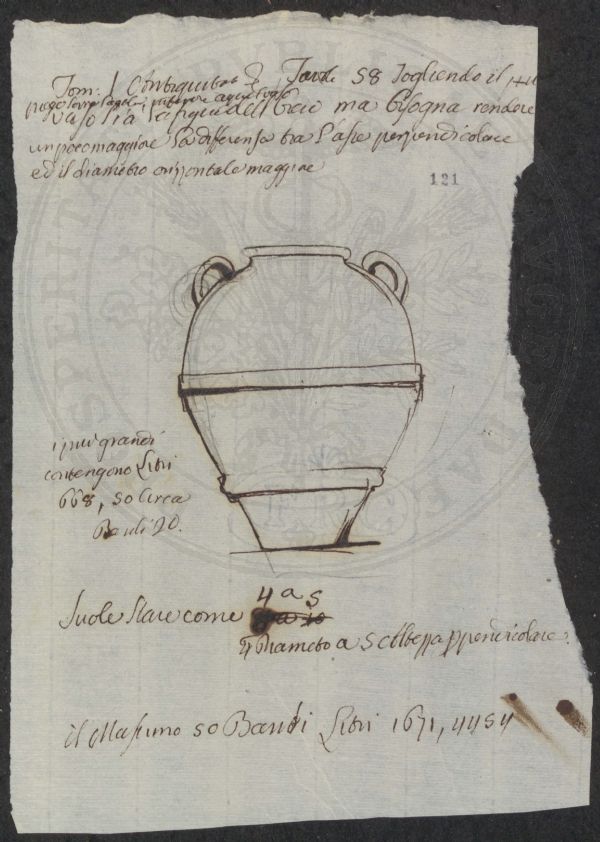 Tom. I Tavole 58 Togliendo il più
vaso sia la figura dell'Ircio ma bisogna rendere
un poco maggiore la differenza tra l'asse perpendicolare
ed il diametro orizzontale maggiore
121
i piu grandi
contengono Litri
668, so Circa
Barili 20.
4 a 5
Suole stare come
diametro a 5 altezza perpendicolare.
il Massimo 50 Barili Litri 1671,4454